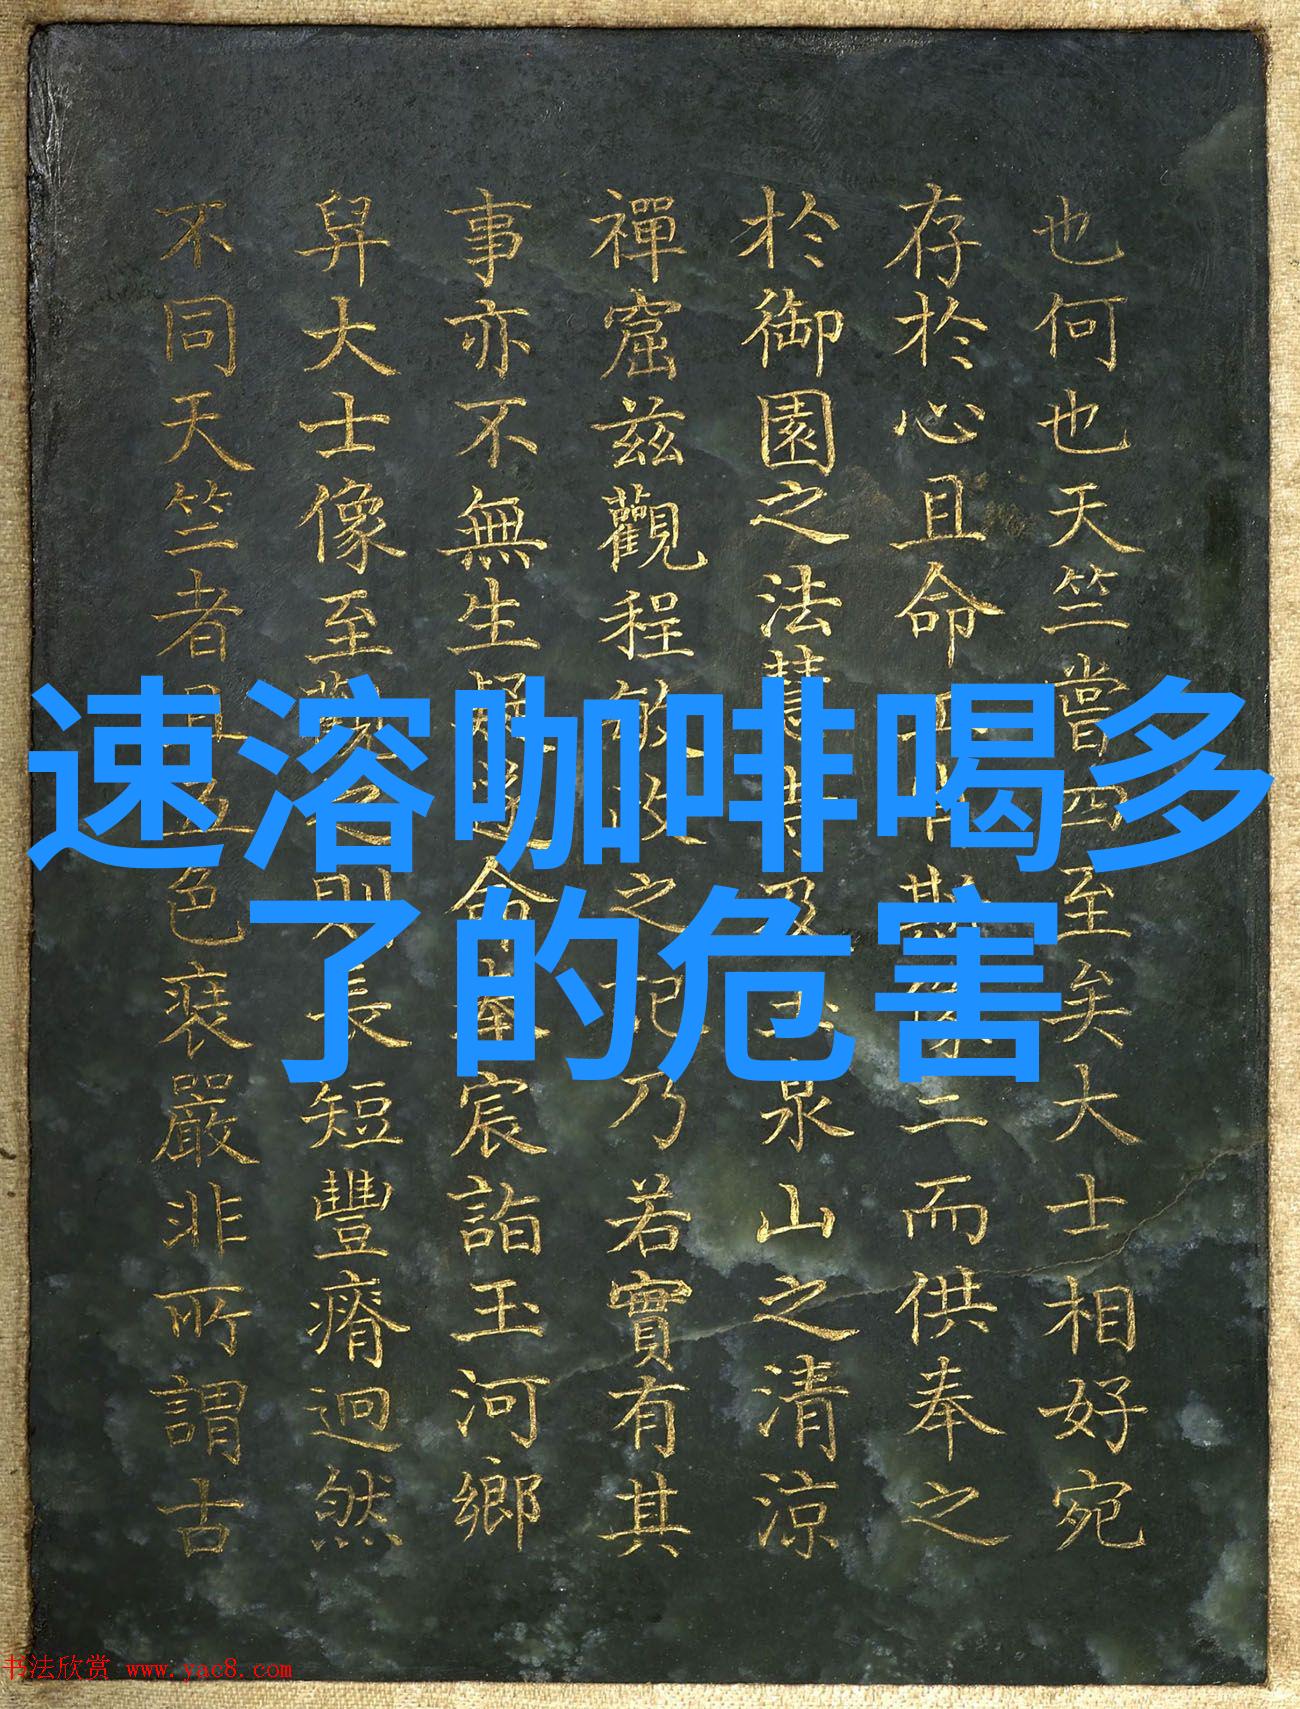 速溶咖啡喝多
了的危害
也何也天竺嘗四至矣大士相好宛
存於心且命二而供奉之
於御園之法慧寺及玉泉山之清涼
禪窟茲觀程敏政之記乃若實有其
事亦不無生疑遂命奉宸詣玉河鄉
舁大士像至觀之則長短豐瘠迥然
不同天竺者且五色裝嚴非所謂古
书法欣赏 www.yac8.com